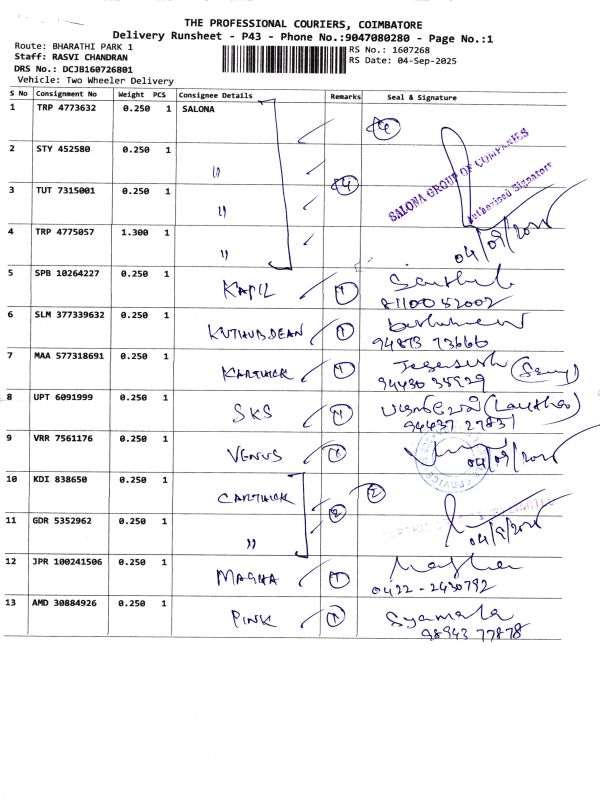 THE PROFESSIONAL COURIERS, COIMBATORE
Delivery Runsheet - P43 - Phone No.:9047080280 - Page No.:1
Route: BHARATHI PARK 1
RS No.: 1607268
Staff: RASVI CHANDRAN
RS Date: 04-Sep-2025
DRS No.: DCJB160726801
Vehicle: Two Wheeler Delivery
S No Consignment No Weight PCS Consignee Details Remarks Seal & Signature
1 TRP 4773632 0.250 1 SALONA 4
2 STY 452580 0.250 1 "
3 TUT 7315001 0.250 1 " 4
SALONA GROUP OF COMPANIES
Authorised Signatory
4 TRP 4775057 1.300 1 "
5 SPB 10264227 0.250 1 KAPIL 1
81100 52002
6 SLM 377339632 0.250 1 KUTHUBDEAN 1
94873 73666
7 MAA 577318691 0.250 1 KARTHICK 1
94430 35929
8 UPT 6091999 0.250 1 SKS 1
94437 27831
9 VRR 7561176 0.250 1 VENUS 1
10 KDI 838650 0.250 1 CARTHICK 2
11 GDR 5352962 0.250 1 " 2
12 JPR 100241506 0.250 1 MAGHA 1
0422 - 2430792
13 AMD 30884926 0.250 1 PINK 1 Syamala
98943 77878